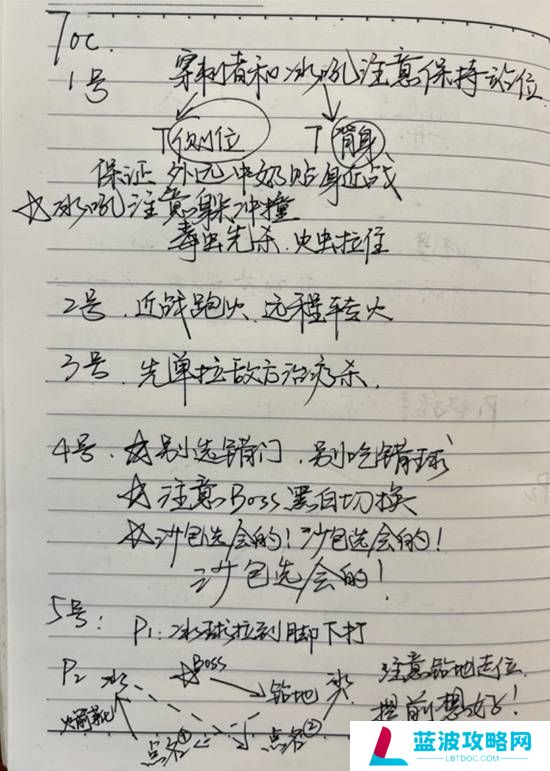 Toc.
1号 穿刺者和冰吼注意保持站位
T侧位 T背身
保证 外 中 贴身近战
☆冰吼注意躲冲撞
毒虫先杀、火虫拉住
2号、近战跑火、远程转火
3号、先单拉敌方治疗杀.
4号、☆别选错门、别吃错球
☆注意Boss黑白切换
☆沙包选会的!沙包选会的!
沙包选会的!
5号: P1:冰球拉到脚下打
P2 冰 ☆Boss 钻地 冰 注意钻地走位
火箭靴 点名① 点名② 提前想好!
蓝波攻略网
LBTDOC.COM